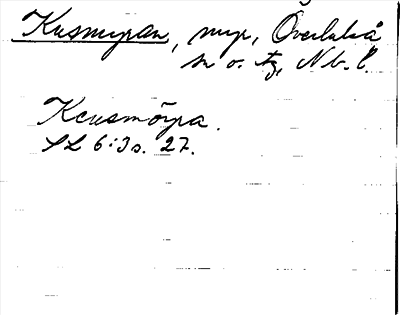 Kusmyran, myr, Överluleå
sn o. tg, Nb. l.
Kcusmöyra.
SL 6:3 s. 27.